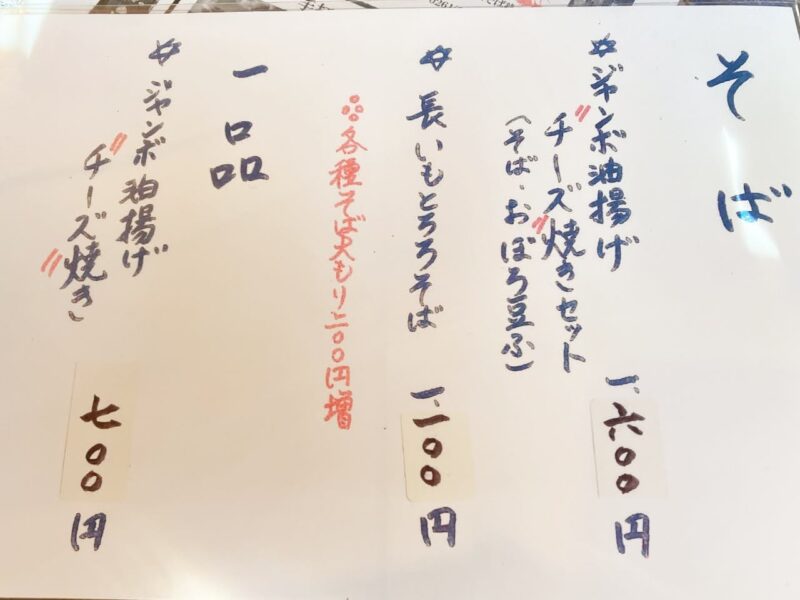 そば
☆ジャンボ油揚げ
〝チーズ〟焼きセット
(そば・おぼろ豆ふ)
一、六〇〇円
☆長いもとろろそば
一、一〇〇円
各種そば大もり二〇〇円増
一品
☆ジャンボ油揚げ
〝チーズ焼き〟
七〇〇円